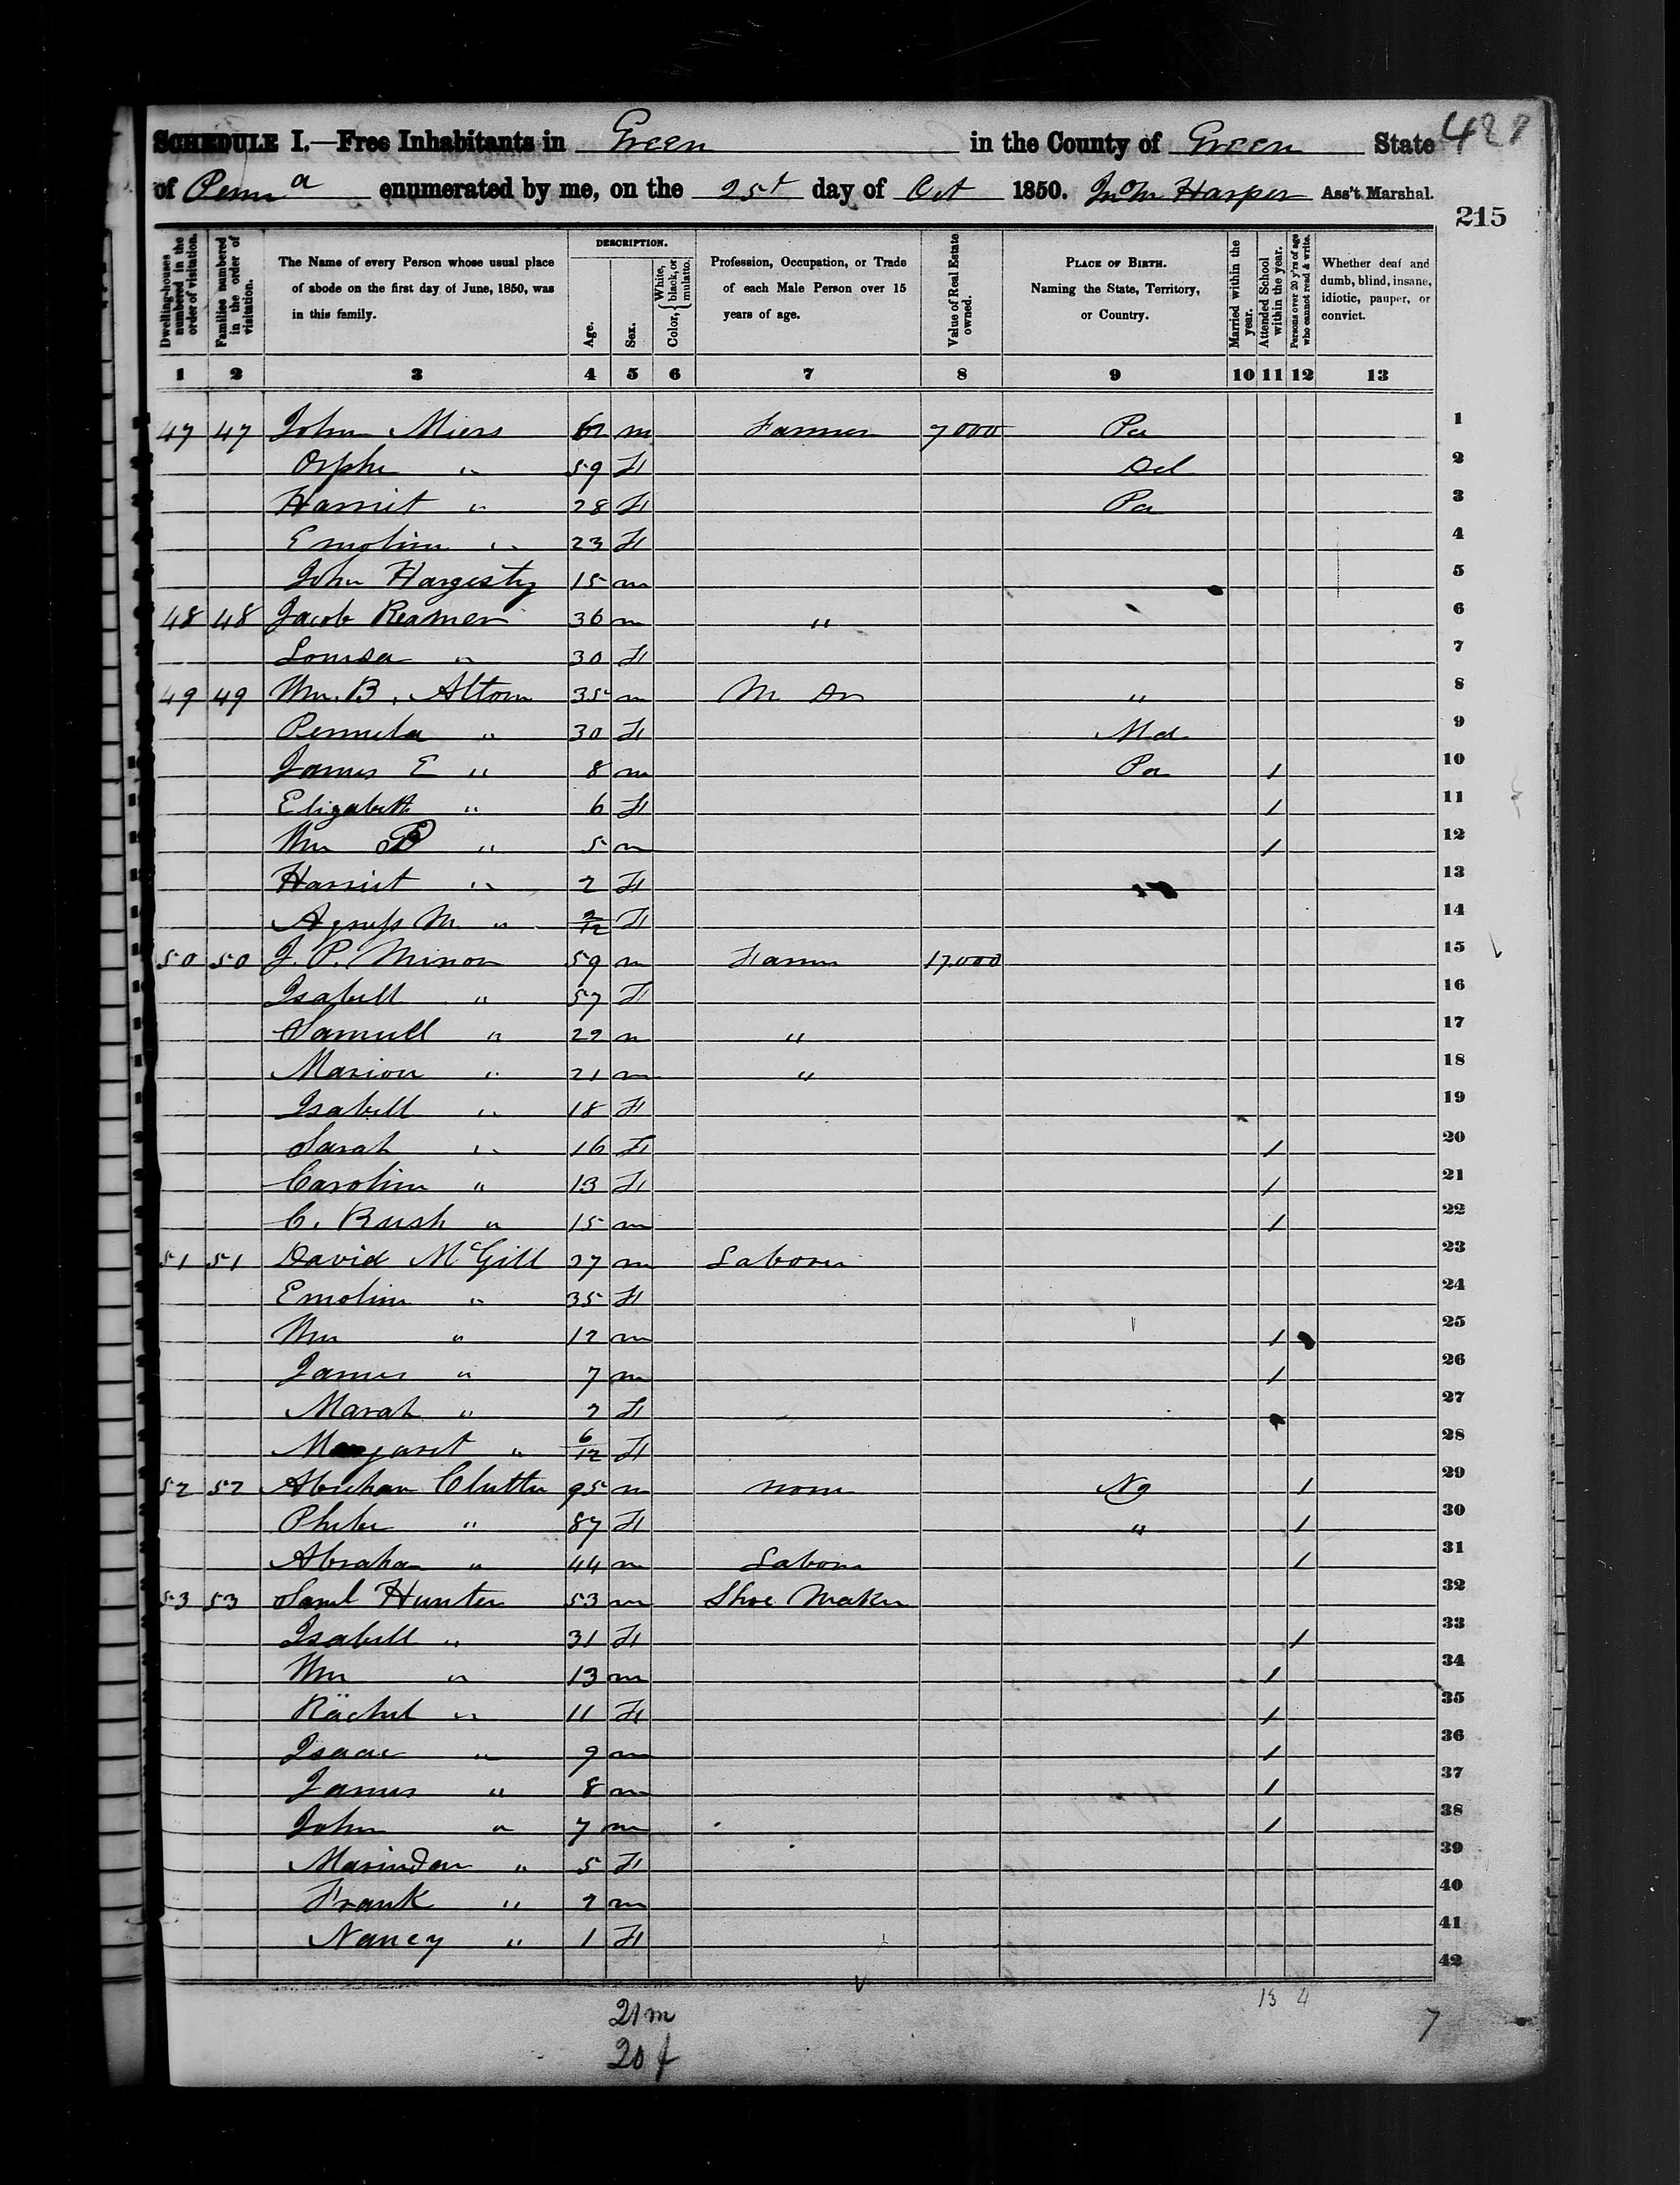 SCHEDULE I.—Free Inhabitants in Green in the County of Green State 427
of Penn a enumerated by me, on the 25t day of Oct 1850. Harper Ass't Marshal.
215
Dwelling-houses numbered in the order of visitation.
Families numbered in the order of visitation.
The Name of every Person whose usual place of abode on the first day of June, 1850, was in this family.
DESCRIPTION.
Age.
Sex.
Color, { White, black, or mulatto.
Profession, Occupation, or Trade of each Male Person over 15 years of age.
Value of Real Estate owned.
PLACE OF BIRTH. Naming the State, Territory, or Country.
Married within the year.
Attended School within the year.
Persons over 20 y'rs of age who cannot read & write.
Whether deaf and dumb, blind, insane, idiotic, pauper, or convict.
1 2 3 4 5 6 7 8 9 10 11 12 13
47 47 John Miers m Farmer 7000 Pa 1
Orpha " 59 F Del 2
Harriet " 28 F Pa 3
Emoline " 23 F 4
John Hargesty 15 m 5
48 48 Jacob Reamer 36 m " 6
Louisa " 30 F 7
49 49 Wm. B. Altom 35 m M Dr " 8
" 30 F Md 9
James E " 8 m Pa 1 10
Elizabeth " 6 F 1 11
Wm B " 5 m 1 12
Harriet " 2 F 13
Agness M. " 2/12 F 14
50 50 J. P. Minor 59 m Farmer 17.000 15
Isabell " 57 F 16
Samuell " 22 m " 17
Marion " 21 m " 18
Isabell " 18 F 19
Sarah " 16 F 1 20
Carolin " 13 F 1 21
C. Rush " 15 m 1 22
51 51 David McGill 37 m Laborer 23
Emoline " 35 F 24
Wm " 12 m 1 25
James " 7 m 1 26
Marah " 2 F 27
Margaret " 6/12 F 28
52 52 Abraham Clutter 95 m none NJ 1 29
Phebe " 87 F " 1 30
Abraham " 44 m Laborer 1 31
53 53 Saml Hunter 53 m Shoe Maker 32
Isabell " 31 F 1 33
Wm " 13 m 1 34
Rachel " 11 F 1 35
Isaac " 9 m 1 36
James " 8 m 1 37
John " 7 m 1 38
Marinda " 5 F 39
Frank " 2 m 40
Nancy " 1 F 41
42
13 4
21 m
20 f
7